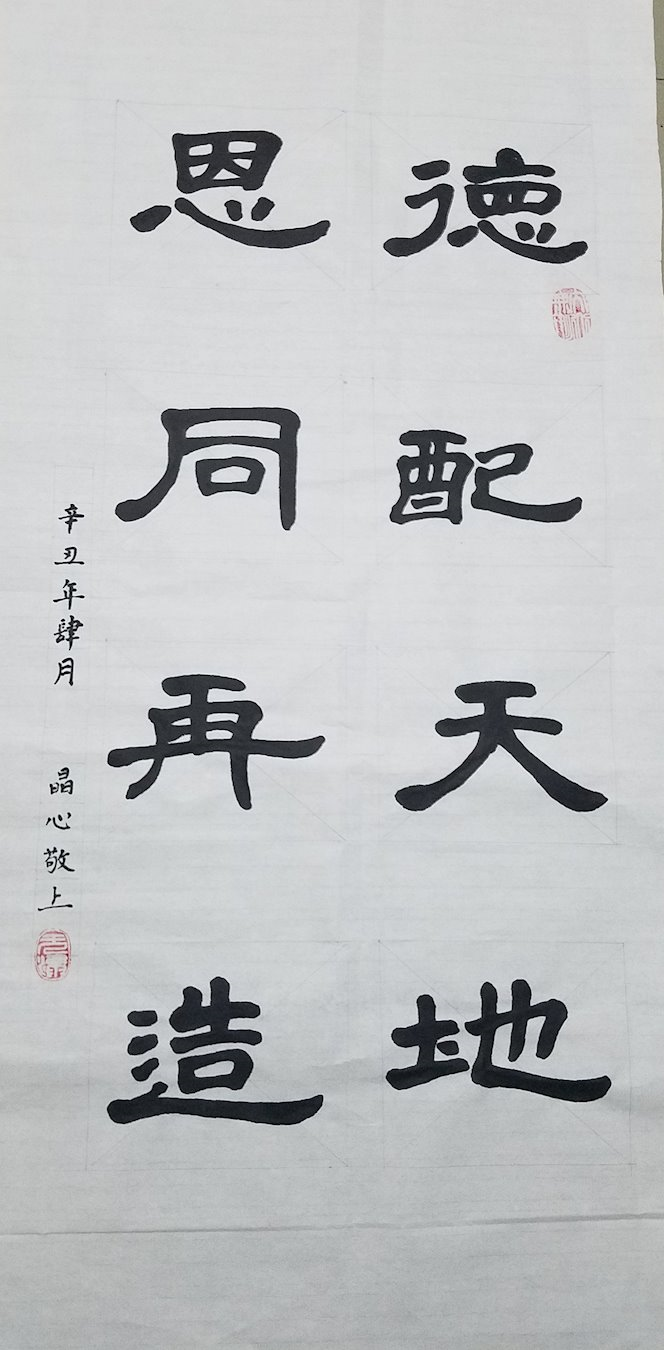 德配天地
恩同再造
辛丑年肆月
晶心敬上